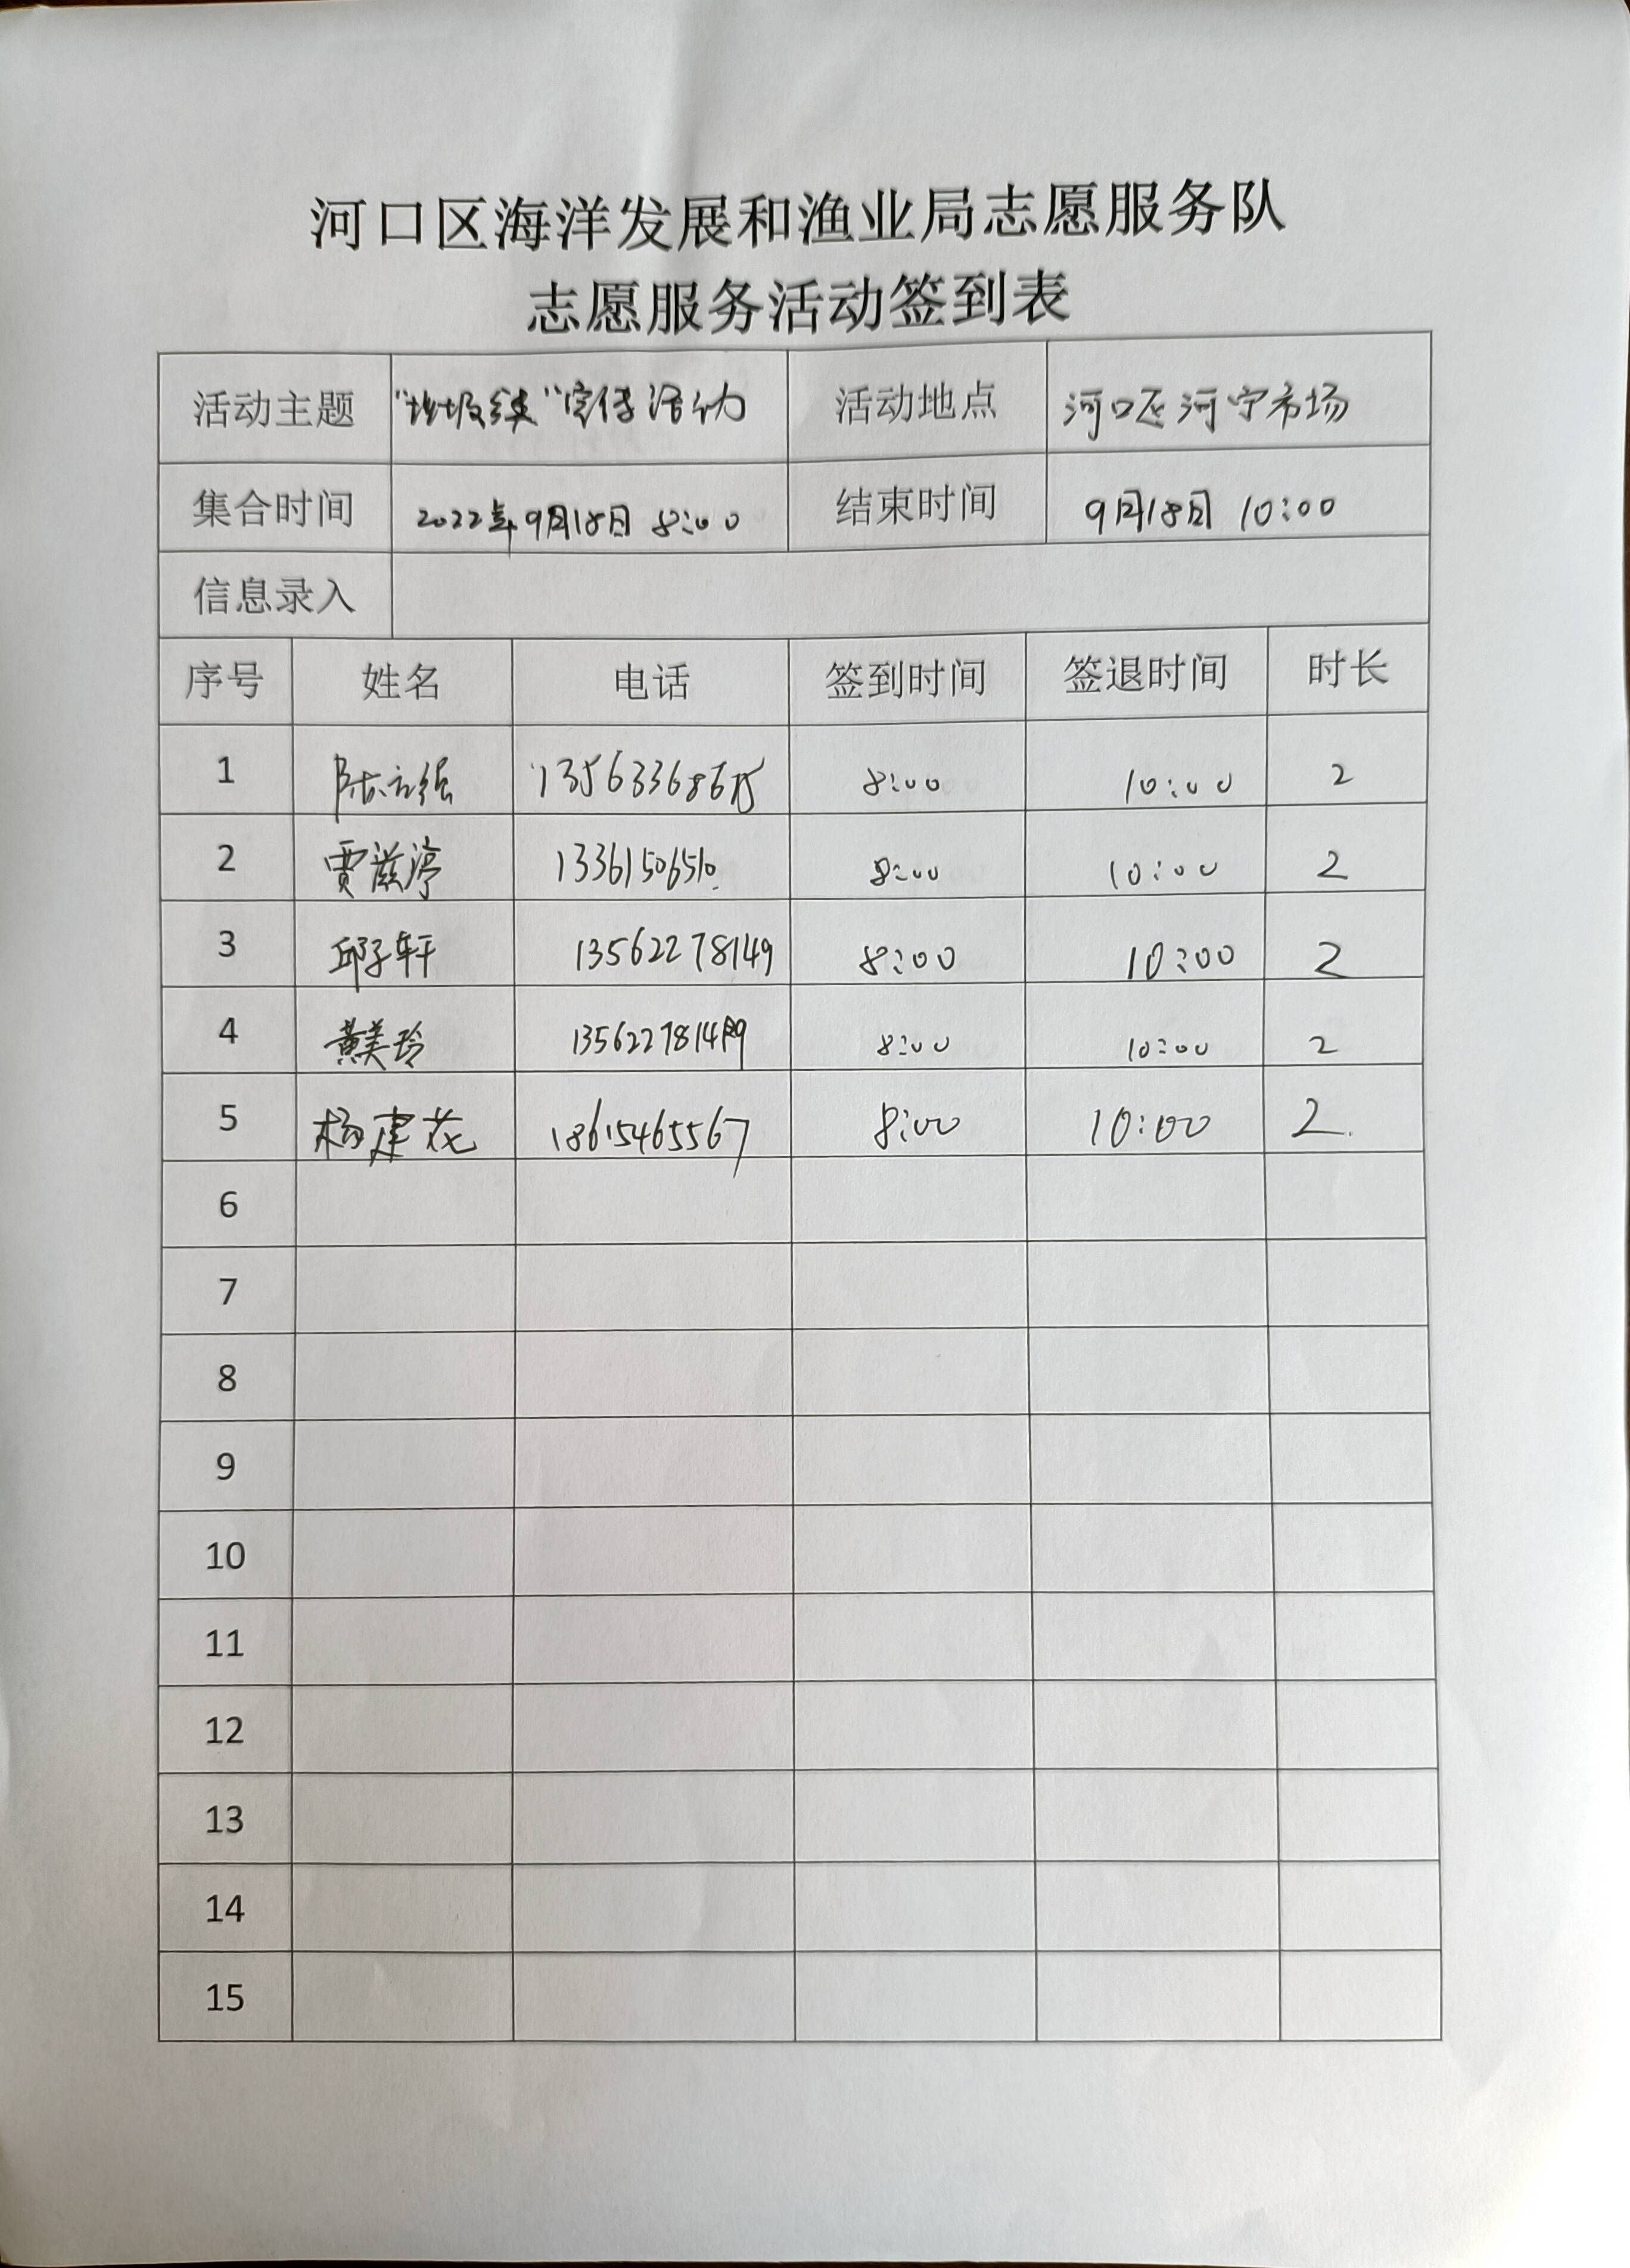 河口区海洋发展和渔业局志愿服务队
志愿服务活动签到表
活动主题 "垃圾 "宣传活动 活动地点 河口区河宁市场
集合时间 2022年9月18日 8:00 结束时间 9月18日 10:00
信息录入
序号 姓名 电话 签到时间 签退时间 时长
1 陈立强 8:00 10:00 2
2 贾滋渟 13361506510 8:00 10:00 2
3 邱子轩 13562278149 8:00 10:00 2
4 黄美玲 8:00 10:00 2
5 杨建花 18615465567 8:00 10:00 2
6
7
8
9
10
11
12
13
14
15